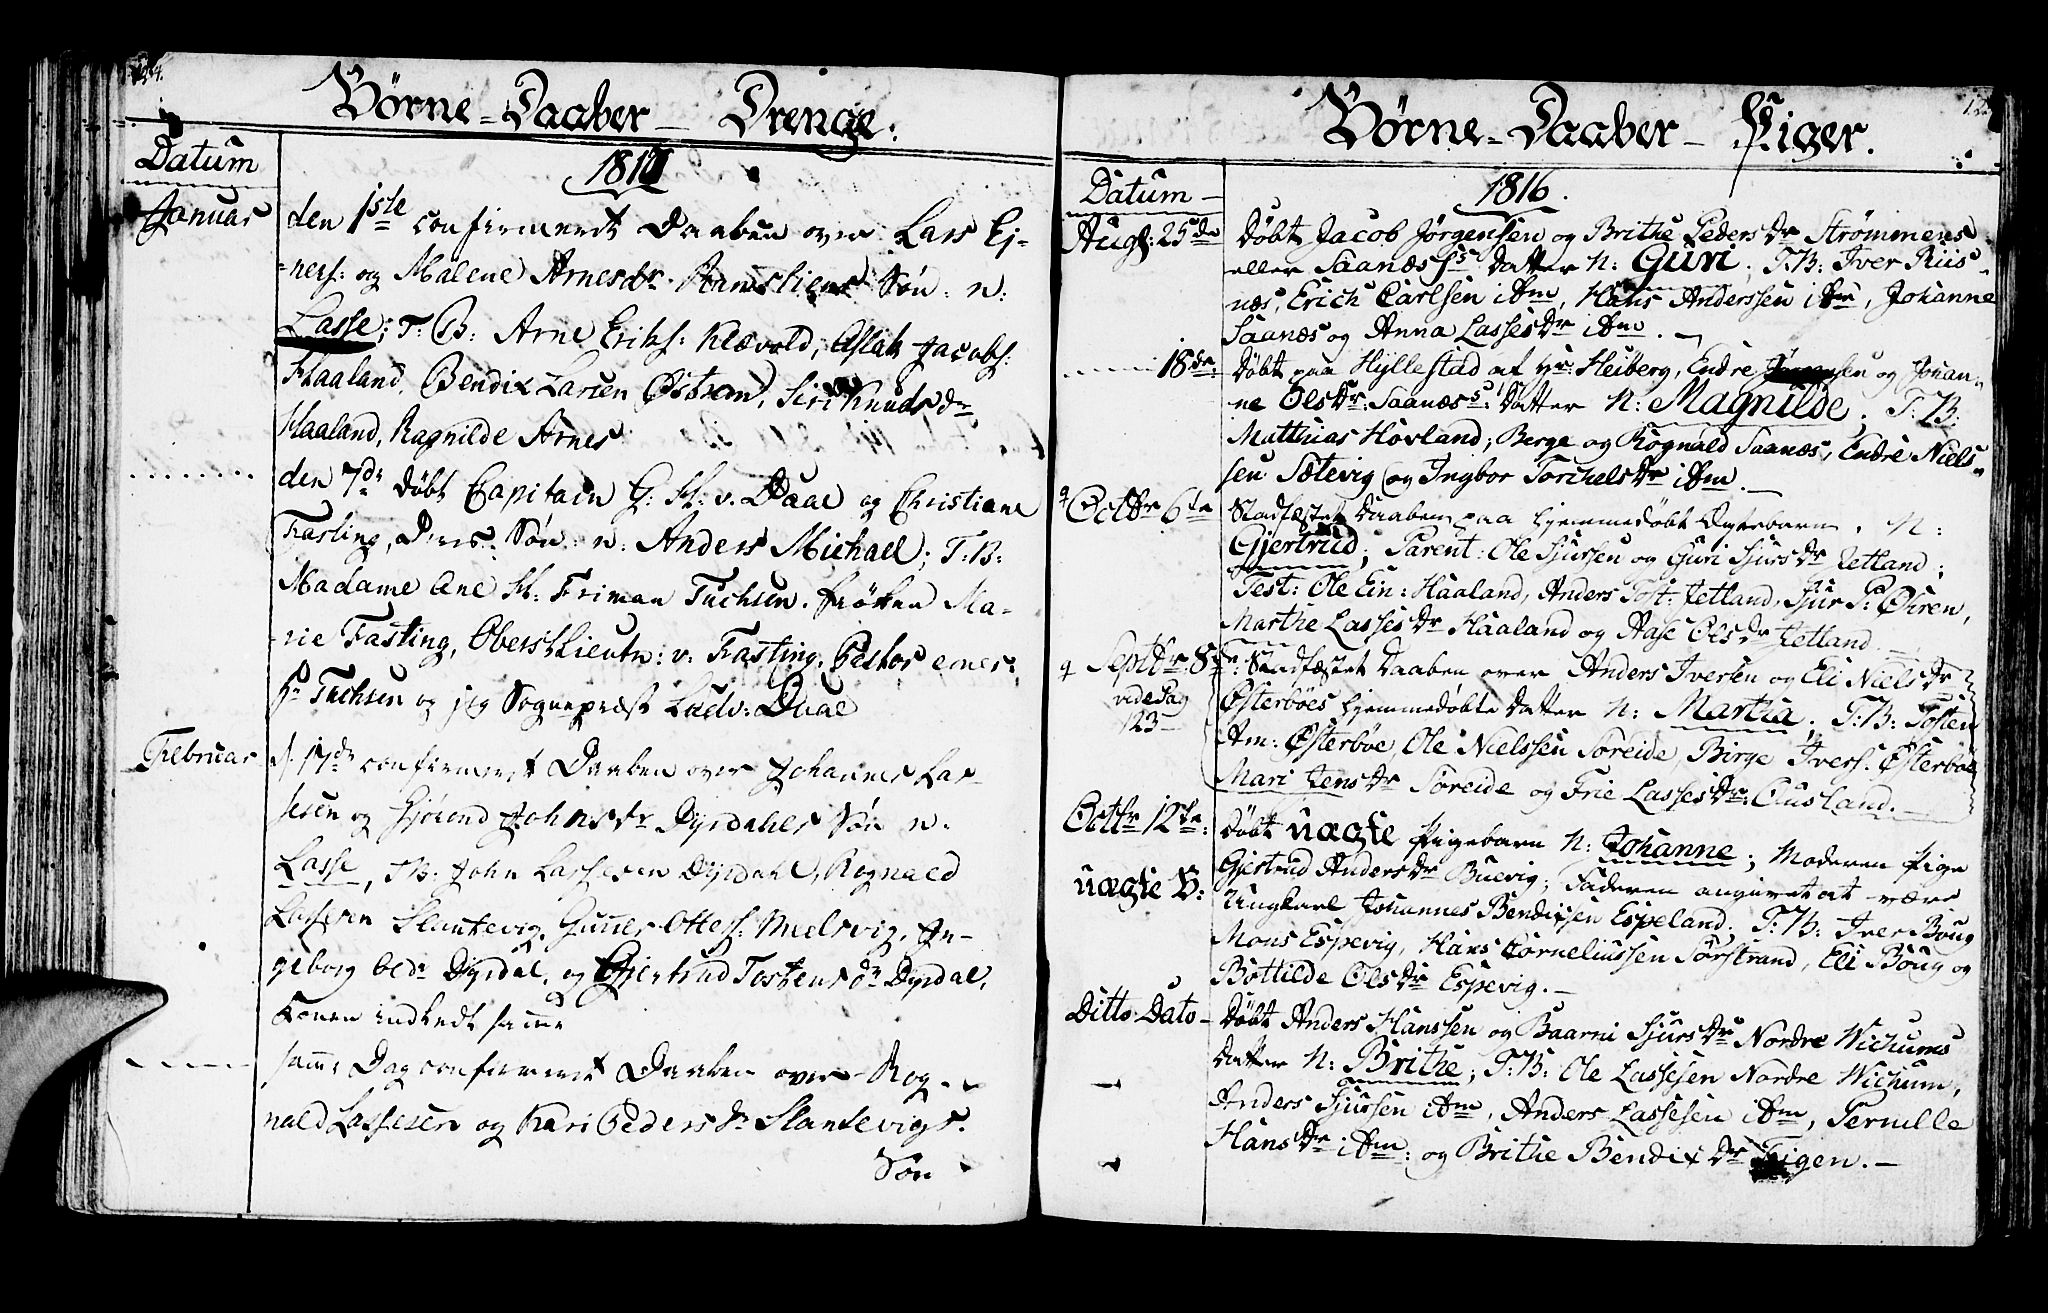 124.
Börne-Daaber - Drenge.
Datum
1817
Januar
den 1ste confirmeret Daaben over Lars Ej-
-ners: og Malene Arnesdr. Søn: n:
Lasse; T: B: Arne Eriks: Klævold, Aslak Jacobs:
Haaland, Bendix Larsen Østrem, Siri Knudsdr
Haaland, Ragnilde Arnes
den 7de døbt Capitain G: H: v. Daae og Christiane
Fasting, Deres Søn: n: Anders Michael; T: B:
Madame Ane H: Friman Tuchsen. frøken Ma-
-rie Fasting, Oberst Lieutn: v: Fasting, Pastor emer:
Hr Tuchsen og jeg Sognepræst Ludv: Daae
Februar
d. 17de confirmeret Daaben over Johannes Las-
sesen og Gjørend Johnsdr Dyrdahls Søn n.
Lasse, T:B: John Lassesen Dyrdahl, Rognald
Lassesen Slautevig, Gunner Ottes: Melsvig, In-
geborg Oldr Dyrdal, og Gjertrud Tostensdr Dyrdal,
Konen indledt samme
samme Dag confirmeret Daaben over Rog-
nald Lassesen og Kari Pedersdr Slautevigs
Søn
Börne-Daaber - Piger.
Datum -
1816.
Aug: 25de
Døbt Jacob Jørgensen og Brithe Pedersdr Strømmens
eller Saanæs's Datter N: Guri. T:B: Iver Riis-
næs, Erich Carlsen ibm, Hans Anderssen ibm, Johanne
Saanæs og Anna Lassesdr ibm. -
18de:
Døbt paa Hyllestad af Hr: Heiberg, Endre Jørgensen og Johan-
ne Olsdr: Saanæs's: Datter N: Magnilde, T:B:
Matthias Hovland, Berge og Rognald Saanæs, Endre Niels-
sen Sætevig og Ingbor Torchelsdr ibm. -
Octbr 6te
Stadfæstet Daaben paa hjemmedøbt Pigebarn. N:
Gjertrud; Parent: Ole Sjursen og Guri Sjursdr Zetland;
Test: Ole Ein: Haaland, Anders Tost: Zetland, Sjur P: Øren,
Marthe Lassesdr Haaland og Aase Olsdr Zetland. -
Septbr 8de:
vide Pag
123 -
Stadfæstet Daaben over Anders Iversen og Eli Nielsdr
Østerböes hjemmedøbte Datter N: Martha. T:B: Tosten
Am: Østerböe, Ole Nielssen Søreide, Birge Ivers: Østerböe
Mari Jensdr Søreide og Frie Lassesdr: Ousland. -
Octbr 12te:
uægte B:
Døbt uægte Pigebarn N: Johanne; Moderen Pige
Gjertrud Andersdr Buevig; Faderen angivet at være
Ungkarl Johannes Bendixsen Espeland; T:B: Iver Boug
Mons Espevig, Hans Corneliussen Sørstrand, Eli Boug og
Bottilde Olsdr Espevig. -
Ditto Dato -
Døbt Anders Hanssen og Baarni Sjursdr Nordre Wichums
Datter N: Brithe; T:B: Ole Lassesen Nordre Wichum,
Anders Sjursen ibm, Anders Lassesen ibm, Pernille
Hansdr: ibm: og Brithe Bendixdr Teigen. -